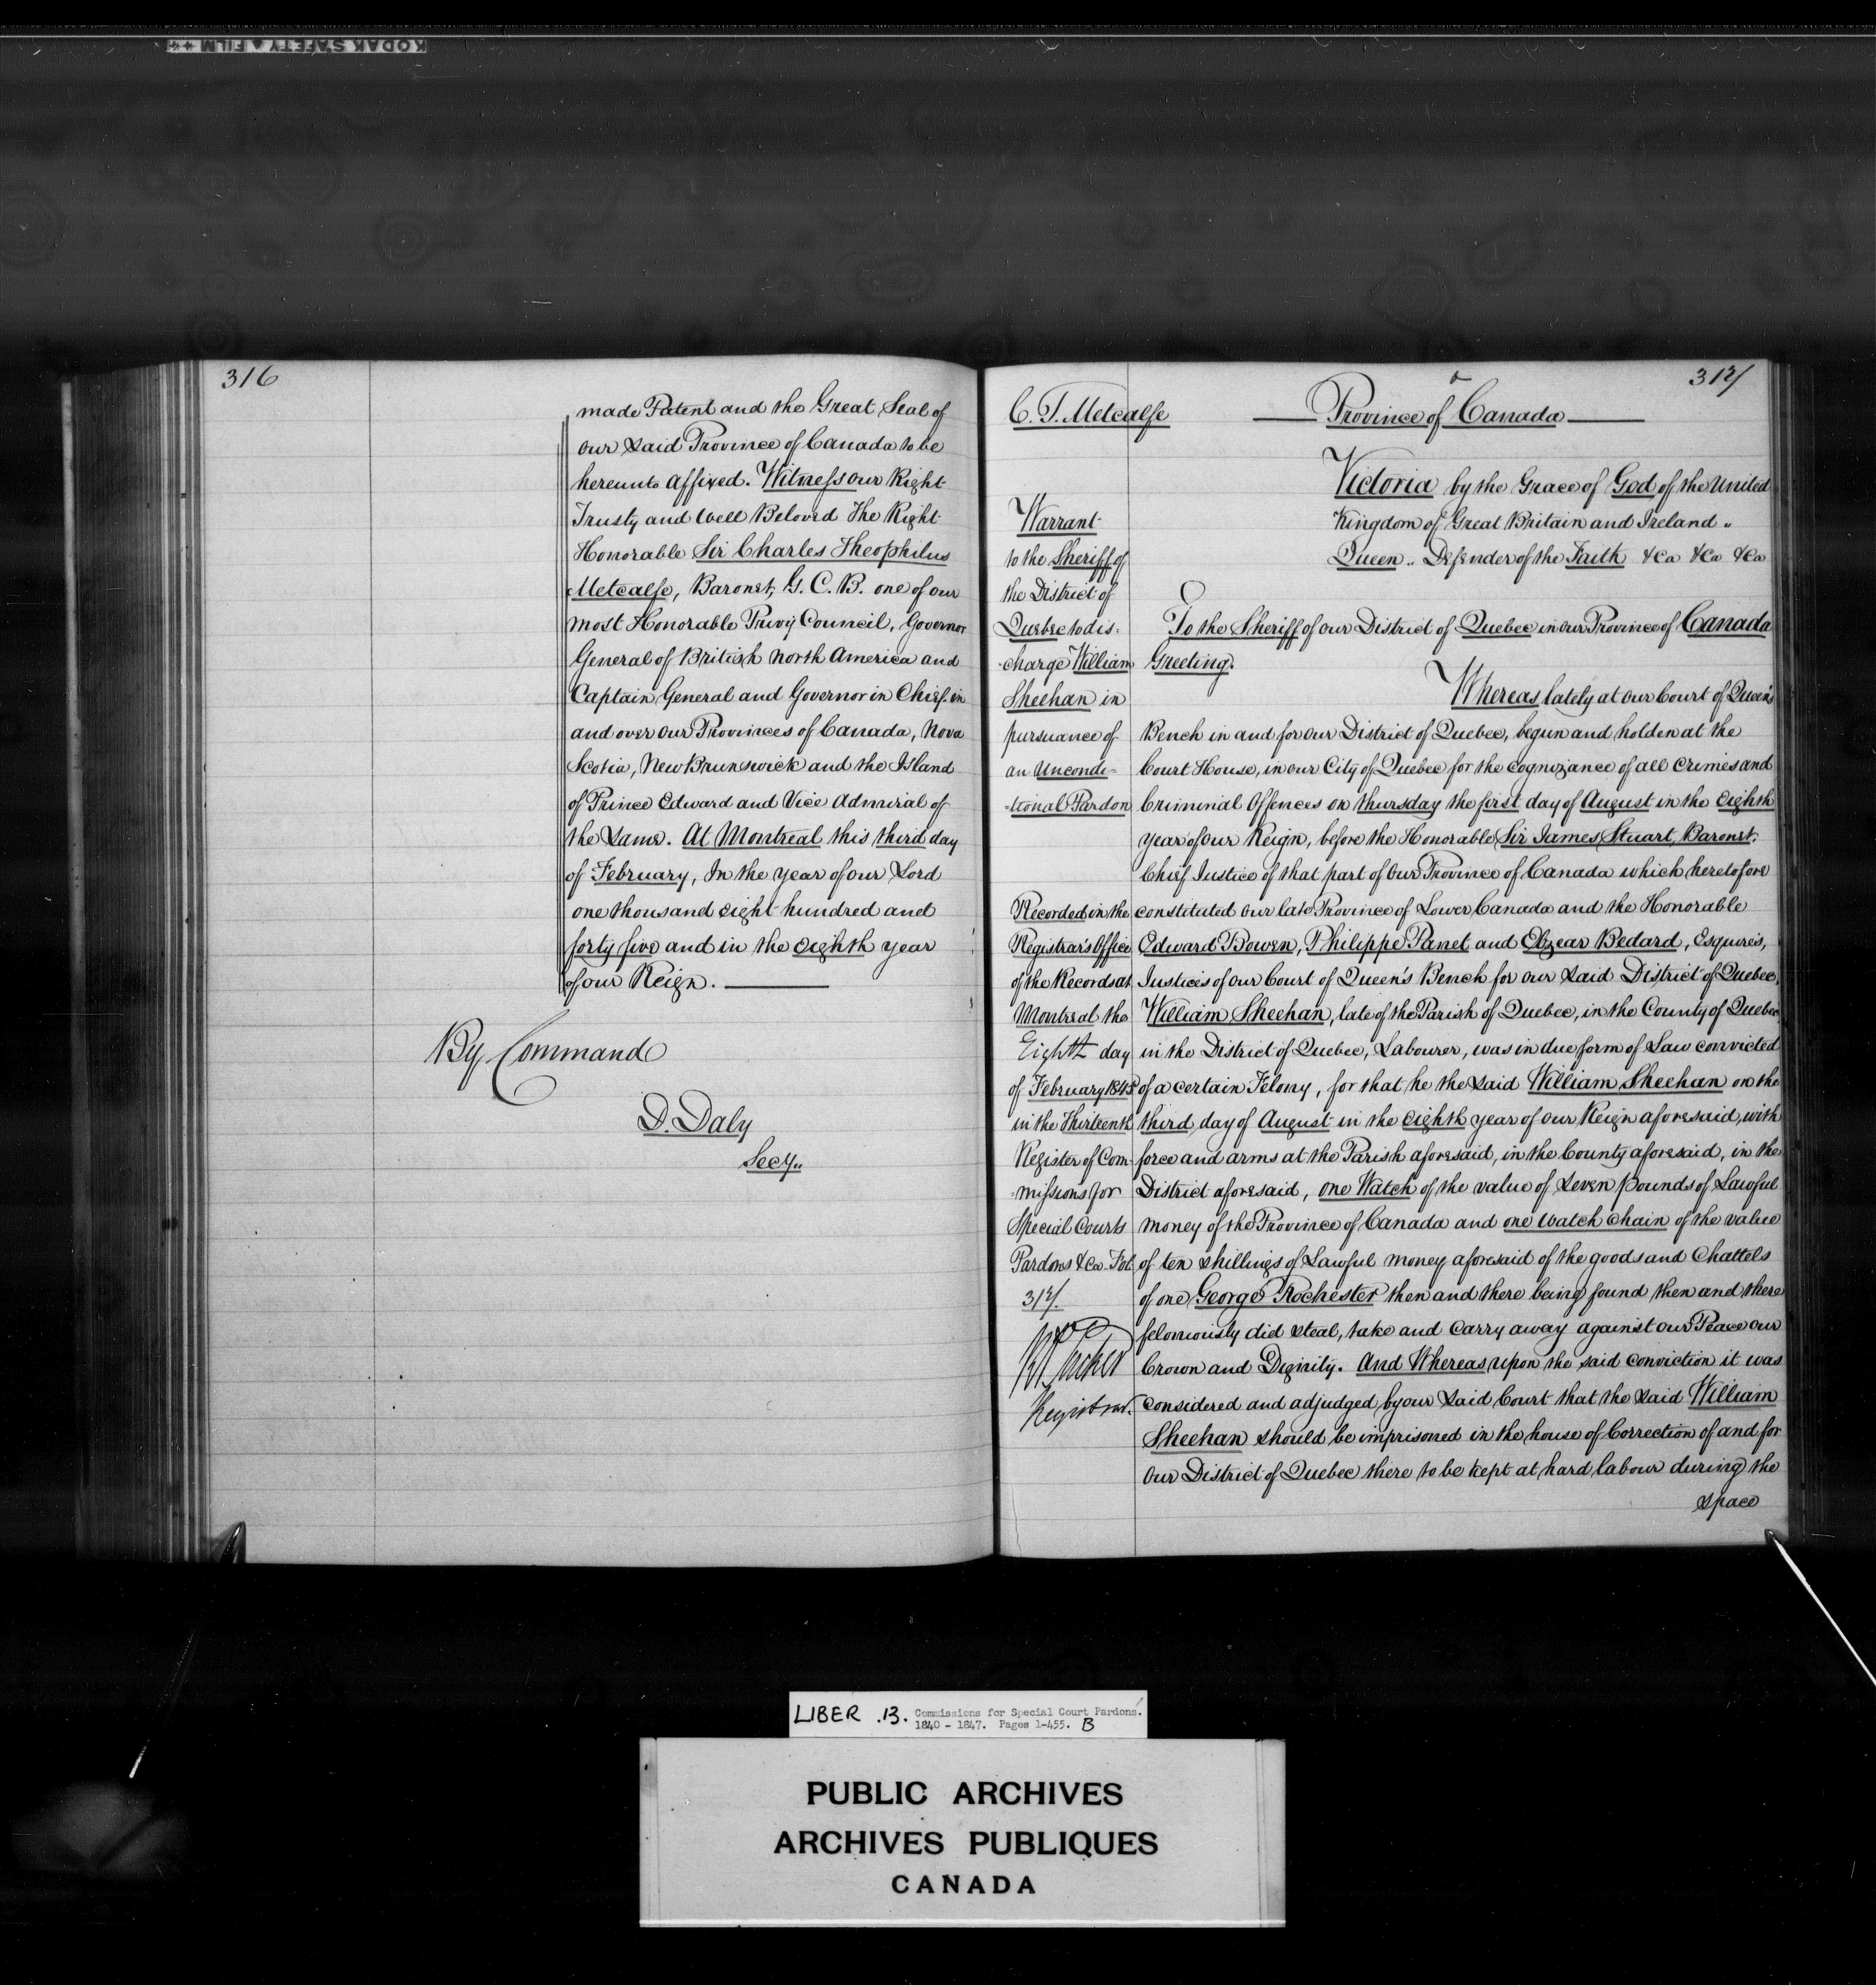 KODAK SAFETY FILM
316
made Patent and the Great Seal of
our said Province of Canada to be
hereunto affixed. Witness our Right
Trusty and Well Beloved The Right
Honorable Sir Charles Theophilus
Metcalfe, Baronet, G. C. B. one of our
most Honorable Privy Council, Governor
General of British North America and
Captain General and Governor in Chief in
and over our Provinces of Canada, Nova
Scotia, New Brunswick and the Island
of Prince Edward and Vice Admiral of
the Same. At Montreal this third day
of February, In the year of our Lord
one thousand eight hundred and
forty five and in the eighth year
of our Reign.
By Command
D. Daly
Secy.
317
C. T. Metcalfe
Warrant
to the Sheriff of
the District of
Quebec to dis-
-charge William
Sheehan in
pursuance of
an Uncondi-
-tional Pardon
Recorded in the
Registrar's Office
of the Records at
Montreal the
Eighth day
of February 1845
in the Thirteenth
Register of Com-
-missions for
Special Courts
Pardons &ca Fol.
317.
Registrar.
Province of Canada
Victoria by the Grace of God of the United
Kingdom of Great Britain and Ireland
Queen .. Defender of the Faith &ca &ca &ca
To the Sheriff of our District of Quebec in our Province of Canada
Greeting.
Whereas lately at our Court of Queen's
Bench in and for our District of Quebec, begun and holden at the
Court House, in our City of Quebec for the cognizance of all crimes and
Criminal Offences on thursday the first day of August in the eighth
year of our Reign, before the Honorable Sir James Stuart, Baronet.
Chief Justice of that part of Our Province of Canada which heretofore
constituted our late Province of Lower Canada and the Honorable
Edward Bowen, Philippe Panet and Elzear Bedard, Esquires,
Justices of our Court of Queen's Bench for our said District of Quebec,
William Sheehan, late of the Parish of Quebec, in the County of Quebec
in the District of Quebec, Labourer, was in due form of Law convicted
of a certain Felony, for that he the said William Sheehan on the
third day of August in the eighth year of our Reign aforesaid, with
force and arms at the Parish aforesaid, in the County aforesaid, in the
District aforesaid, one Watch of the value of seven pounds of Lawful
money of the Province of Canada and one watch chain of the value
of ten shillings of Lawful money aforesaid of the goods and Chattels
of one George Rochester then and there being found then and there
feloniously did steal, take and carry away against our Peace our
Crown and Dignity. And Whereas upon the said conviction it was
considered and adjudged by our said Court that the said William
Sheehan should be imprisoned in the house of Correction of and for
our District of Quebec there to be kept at hard labour during the
space
LIBER .13. Commissions for Special Court Pardons.
1840 - 1847. Pages 1-455. B
PUBLIC ARCHIVES
ARCHIVES PUBLIQUES
CANADA